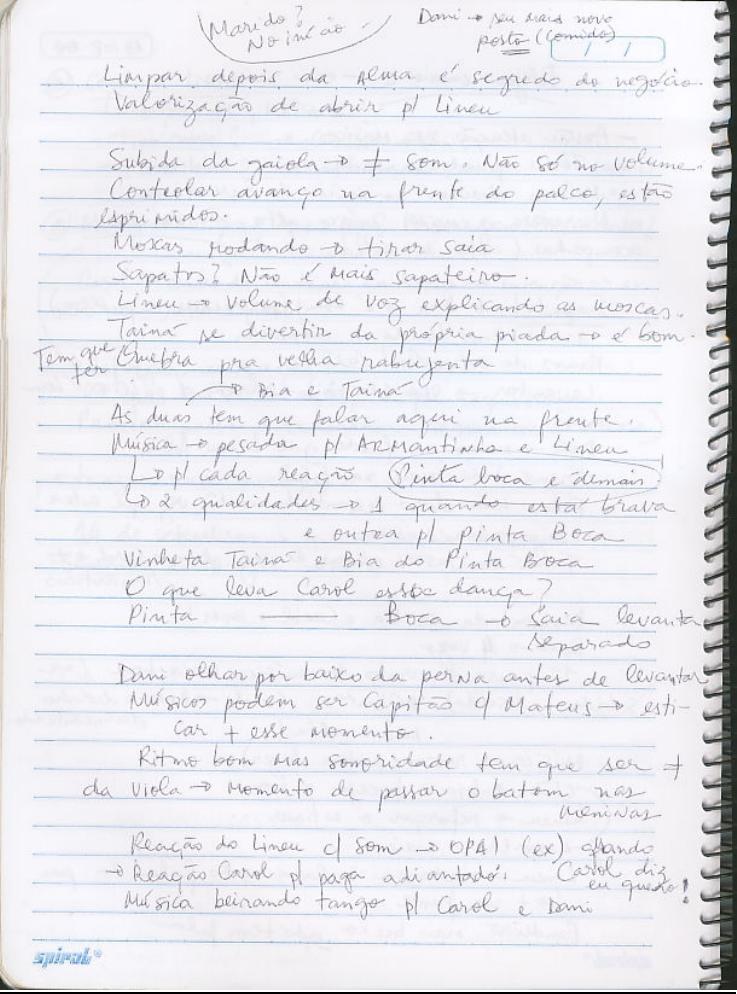 Marido?
No início.
Dani → seu mais novo
posto (comido)
/ /
Limpar depois da Alma é segredo do negócio.
Valorização de abrir p/ Lineu
Subida da gaiola → ≠ som. Não só no volume.
Controlar avanço na frente do palco, estão
espremidos.
Moscas rodando → tirar saia
Sapatos? Não é mais sapateiro.
Lineu → volume de voz explicando as moscas.
Tainá se divertir da própria piada → é bom.
Tem que ter Quebra pra velha rabujenta
→ Bia e Tainá
As duas tem que falar aqui na frente.
Música → pesada p/ Armantinha e Lineu
↳ p/ cada reação (Pinta boca e demais)
↳ 2 qualidades → 1 quando está brava
e outra p/ pinta Boca
Vinheta Tainá e Bia do Pinta Boca
O que leva Carol essa dança?
Pinta —— Boca → Saia levanta
separado
Dani olhar por baixo da perna antes de levantar
Músicos podem ser Capitão c/ Mateus → esti-
car + esse momento.
Ritmo bom mas sonoridade tem que ser ≠
da viola → Momento de passar o batom nas
meninas
Reação do Lineu c/ som → OPA! (ex) quando
Carol diz
→ Reação Carol p/ paga adiantado!
eu quero!
Música beirando tango p/ Carol e Dani
spiral®